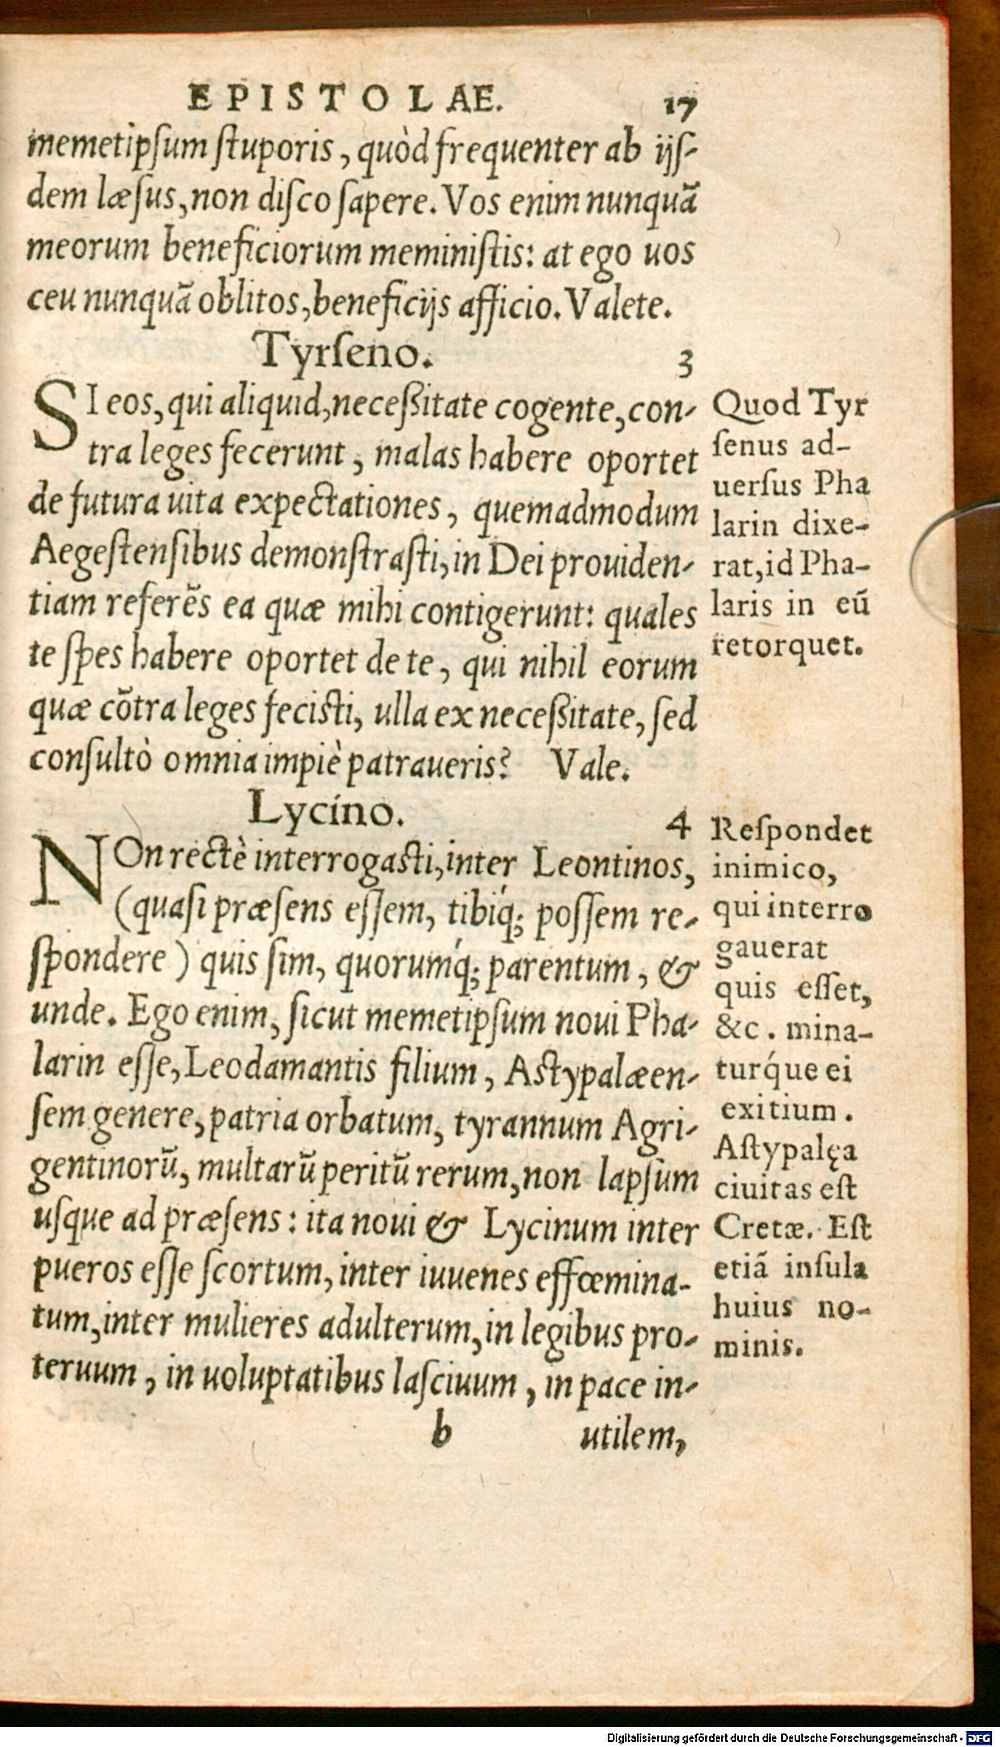 EPISTOLAE. 17
memetipsum ſtuporis, quòd frequenter ab ijſ-
dem læſus, non diſco ſapere. Vos enim nunquã
meorum beneficiorum meminiſtis: at ego uos
ceu nunquã oblitos, beneficijs afficio. Valete.
Tyrſeno. 3
SI eos, qui aliquid, neceßitate cogente, con-
tra leges fecerunt, malas habere oportet
de futura uita expectationes, quemadmodum
Aegeſtenſibus demonſtraſti, in Dei prouiden-
tiam referẽs ea quæ mihi contigerunt: quales
te ſpes habere oportet de te, qui nihil eorum
quæ cõtra leges feciſti, ulla ex neceßitate, ſed
conſultò omnia impiè patraueris? Vale.
Quod Tyr
ſenus ad-
uerſus Pha
larin dixe-
rat, id Pha-
laris in eũ
retorquet.
Lycino. 4
NOn rectè interrogaſti, inter Leontinos,
(quaſi præſens eſſem, tibiq́; poſſem re-
ſpondere) quis ſim, quorumq́; parentum, &
unde. Ego enim, ſicut memetipſum noui Pha-
larin eſſe, Leodamantis filium, Aſtypalæen-
ſem genere, patria orbatum, tyrannum Agri-
gentinorũ, multarũ peritũ rerum, non lapſum
uſque ad præſens: ita noui & Lycinum inter
pueros eſſe ſcortum, inter iuuenes effœmina-
tum, inter mulieres adulterum, in legibus pro-
teruum, in uoluptatibus laſciuum, in pace in-
b utilem,
Reſpondet
inimico,
qui interro
gauerat
quis eſſet,
&c. mina-
turq́ue ei
exitium.
Aſtypalęa
ciuitas eſt
Cretæ. Eſt
etiã inſula
huius no-
minis.
Digitalisierung gefördert durch die Deutsche Forschungsgemeinschaft - DFG